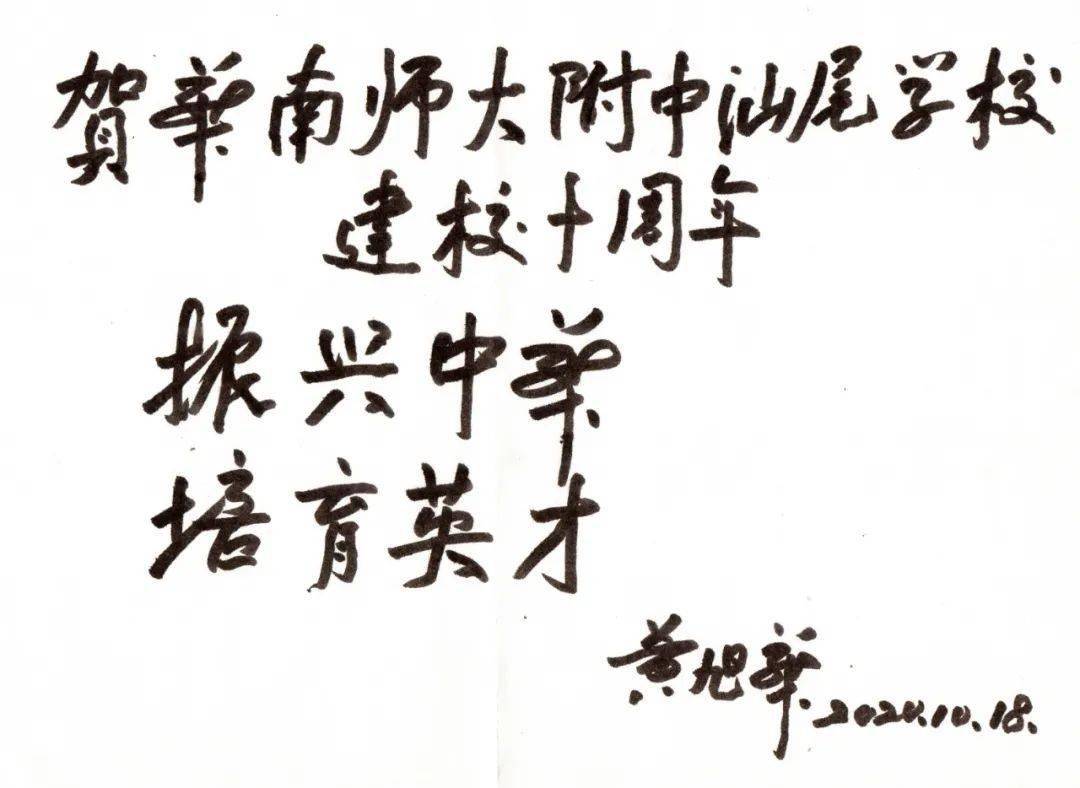 賀華南师大附中汕尾学校
建校十周年
振兴中華
培育英才
黄旭華 2020.10.18.